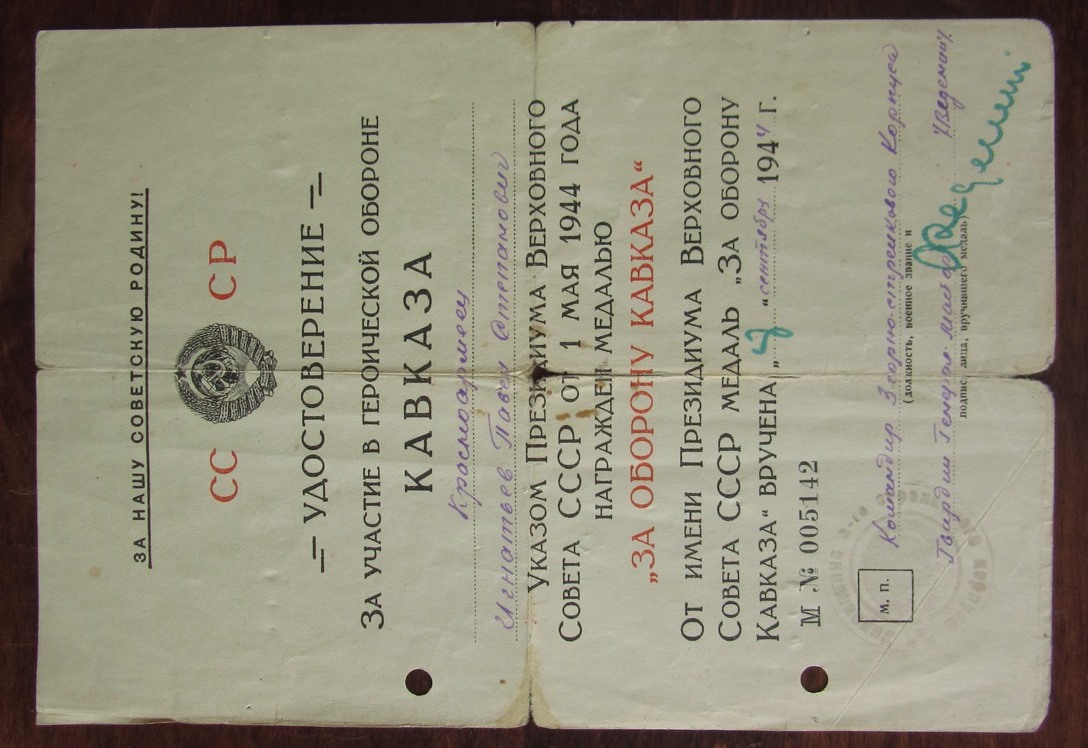 ЗА НАШУ СОВЕТСКУЮ РОДИНУ!
СС СР
УДОСТОВЕРЕНИЕ
ЗА УЧАСТИЕ В ГЕРОИЧЕСКОЙ ОБОРОНЕ
КАВКАЗА
Красноармеец
Игнатьев Павел Степанович
УКАЗОМ ПРЕЗИДИУМА ВЕРХОВНОГО
СОВЕТА СССР ОТ 1 МАЯ 1944 ГОДА
НАГРАЖДЕН МЕДАЛЬЮ
„ЗА ОБОРОНУ КАВКАЗА“
ОТ ИМЕНИ ПРЕЗИДИУМА ВЕРХОВНОГО
СОВЕТА СССР МЕДАЛЬ „ЗА ОБОРОНУ
КАВКАЗА“ ВРУЧЕНА „ “ сентября 1944 Г.
М № 005142
Командир 3 горно-стрелкового Корпуса
(должность, военное звание и
М. П.
Гвардии Генерал-майор /Веденин/
подпись лица, вручившего медаль)